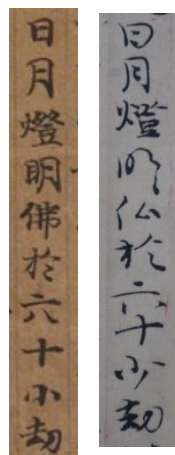 日月燈明佛於六十小劫
日月燈明仏於六十小劫